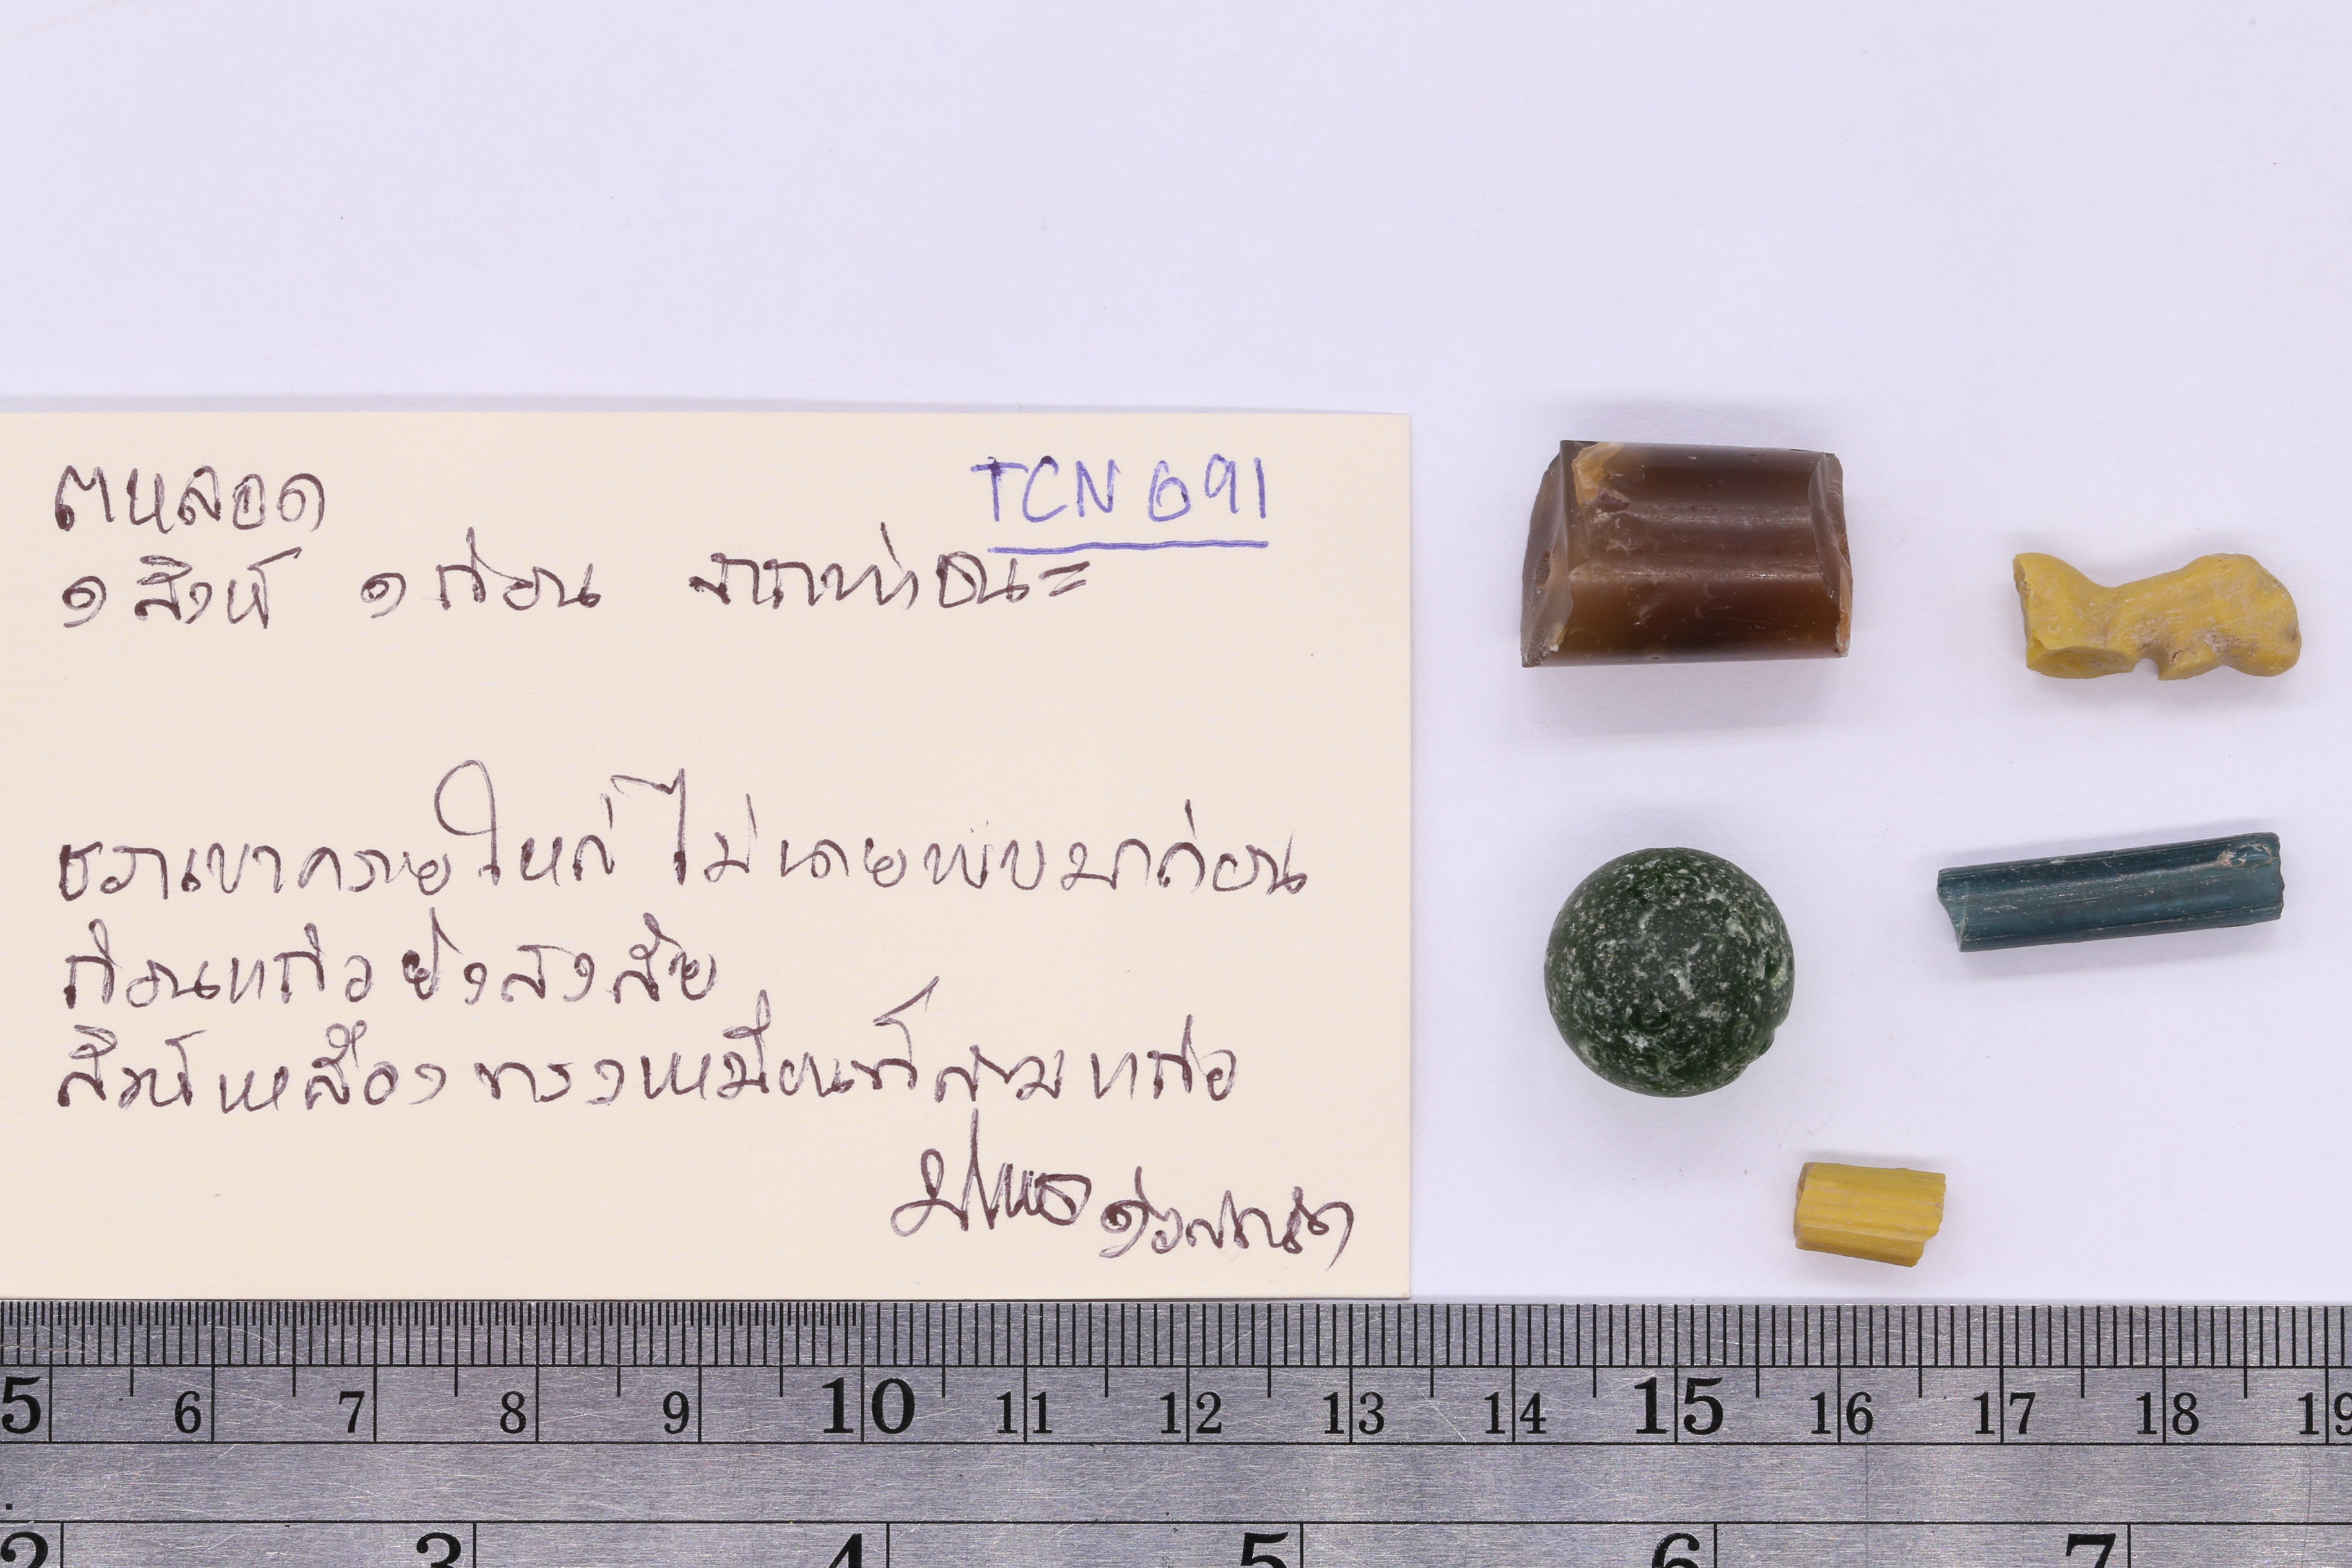 ๓ หลอด TCN 691
๑ สิงห์ ๑ ก้อน จากท่าชนะ
เขาควายใหญ่ ไม่เคยพบมาก่อน
ก้อนแก้วยังสงสัย
สิงห์เหลืองทรงเหมือนที่ แก้ว
5 6 7 8 9 10 11 12 13 14 15 16 17 18 19
2 3 4 5 6 7